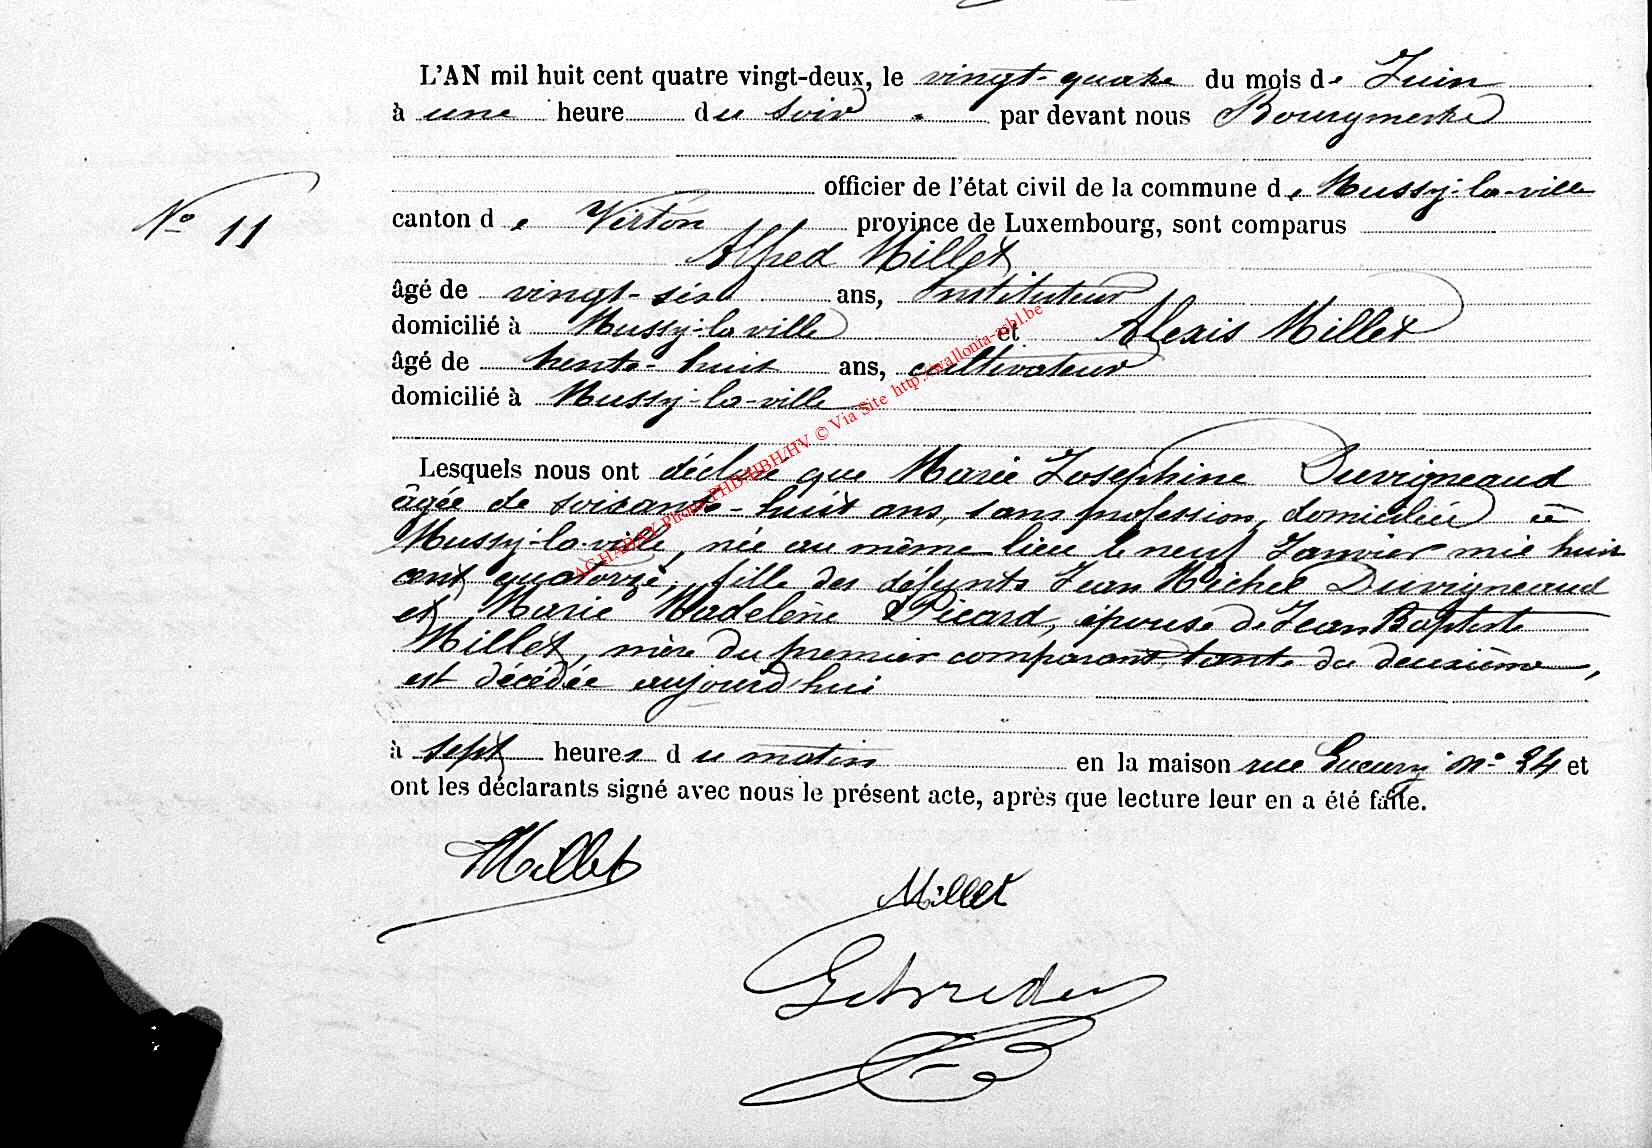 L'AN mil huit cent quatre vingt-deux, le vingt-quatre du mois de Juin
à une heure du soir par devant nous Bourgmestre
officier de l'état civil de la commune de Mussy-la-ville
N° 11
canton de Virton province de Luxembourg, sont comparus
Alfred Millet
âgé de vingt-six ans, Instituteur
domicilié à Mussy-la ville et Alexis Millet
âgé de trente-huit ans, cultivateur
domicilié à Mussy-la-ville
Lesquels nous ont déclaré que Marie Josephine Duvigneaud
âgée de soixante-huit ans, sans profession, domiciliée à
Mussy-la-ville, née au même lieu le neuf Janvier mil huit
cent quatorze, fille des défunts Jean Michel Duvigneaud
et Marie Madeleine Picard, épouse de Jean Baptiste
Millet, mère du premier comparant, tante du deuxième,
est décédée aujourd'hui
à sept heures du matin en la maison rue n° 24 et
ont les déclarants signé avec nous le présent acte, après que lecture leur en a été faite.
Millet
Millet
AC HABAY Photo PHD/HBH/HV © Via Site http://wallonia-asbl.be